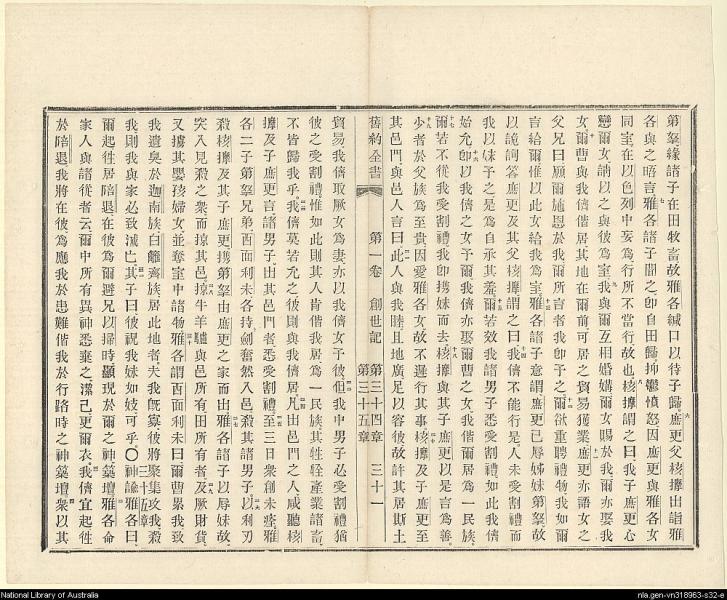 第拏緣諸子在田牧畜故雅各緘口以待子歸庶更父核摩出詣雅
各與之晤言雅各諸子聞之卽自田歸抑鬱憤怒因庶更與雅各女
同室在以色列中妄爲行所不當行故也核摩謂之曰我子庶更心
戀爾女請以之與彼爲室我與爾互相婚媾爾女賜於我爾亦娶我
女爾曹與我儕偕居其地在爾前可居之貿易獲業庶更亦語女之
父兄曰願爾施恩於我爾所言者我卽予之爾欲重聘禮物我如爾
言給爾惟以此女給我爲室雅各諸子意謂庶更已辱姊妹第拏故
以詭詞答庶更及其父核摩謂之曰我儕不能行是人未受割禮而
我以妹予之是爲自承其羞爾若效我諸男子悉受割禮如此我儕
始允卽以我儕之女予爾我儕亦娶爾曹之女我偕爾居爲一民族
爾若不從我受割禮我卽攜妹而去核摩與其子庶更以是言爲善
少者於父族爲至貴因愛雅各女故不遲行其事核摩及子庶更至
其邑門與邑人言曰此人與我睦且地廣足以容彼故許其居斯土
舊約全書
第一卷 創世記
第三十四章
第三十五章
三十一
貿易我儕取厥女爲妻亦以我儕女予彼但我中男子必受割禮猶
彼之受割禮惟如此則其人肯偕我居爲一民族其牲牷產業諸畜
不皆歸我乎我儕莫若允之彼則與我儕居凡出邑門之人咸聽核
摩及子庶更言諸男子出其邑門者悉受割禮至三日衆創未痊雅
各二子第拏兄弟西面利未各持劍奮然入邑殺其諸男子以利刃
殺核摩及其子庶更攜第拏由庶更之家而出雅各諸子以辱妹故
突入見殺之衆而掠其邑掠牛羊驢與邑所有田所有者及厥財貨
又擄其嬰孩婦女並奪室中諸物雅各謂西面利未曰爾曹累我致
我遺臭於迦南族比哩洗族居此地者夫我旣寡彼將聚集攻我殺
我則我與家必致滅亡其子曰彼視我妹如妓可乎〇神諭雅各曰
三十五章
爾起往居陪退在彼爲爾避兄以掃時顯現於爾之神築壇雅各命
家人與諸從者云爾中所有異神悉棄之潔己更爾衣我儕宜起往
於陪退我將在彼爲應我於患難偕我於行路時之神築壇衆以其
National Library of Australia
nla.gen-vn318963-s32-e